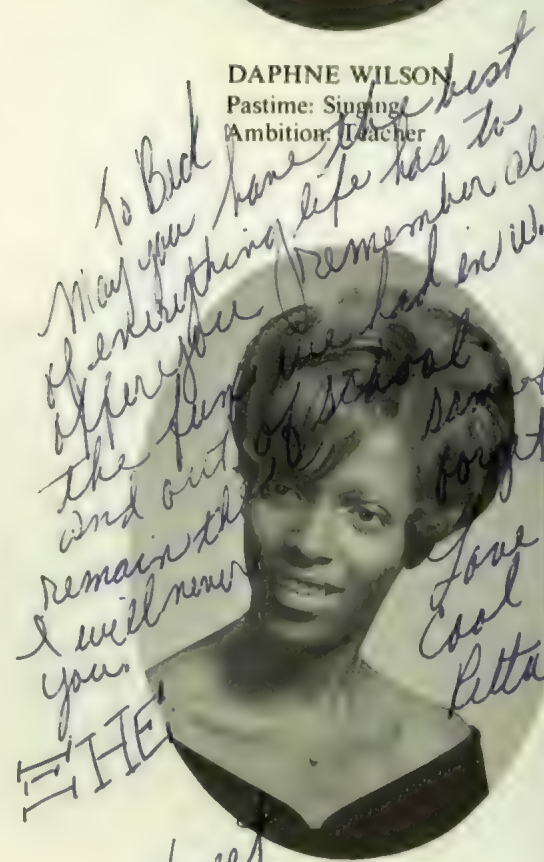 DAPHNE WILSON
Pastime: Singing
Ambition: Teacher
To
May you have the best
of everything life has to
offer you remember all
the fun we had in W.
and out of school
remain the same
I will never forget
you.
Love
Cool
ΞHE